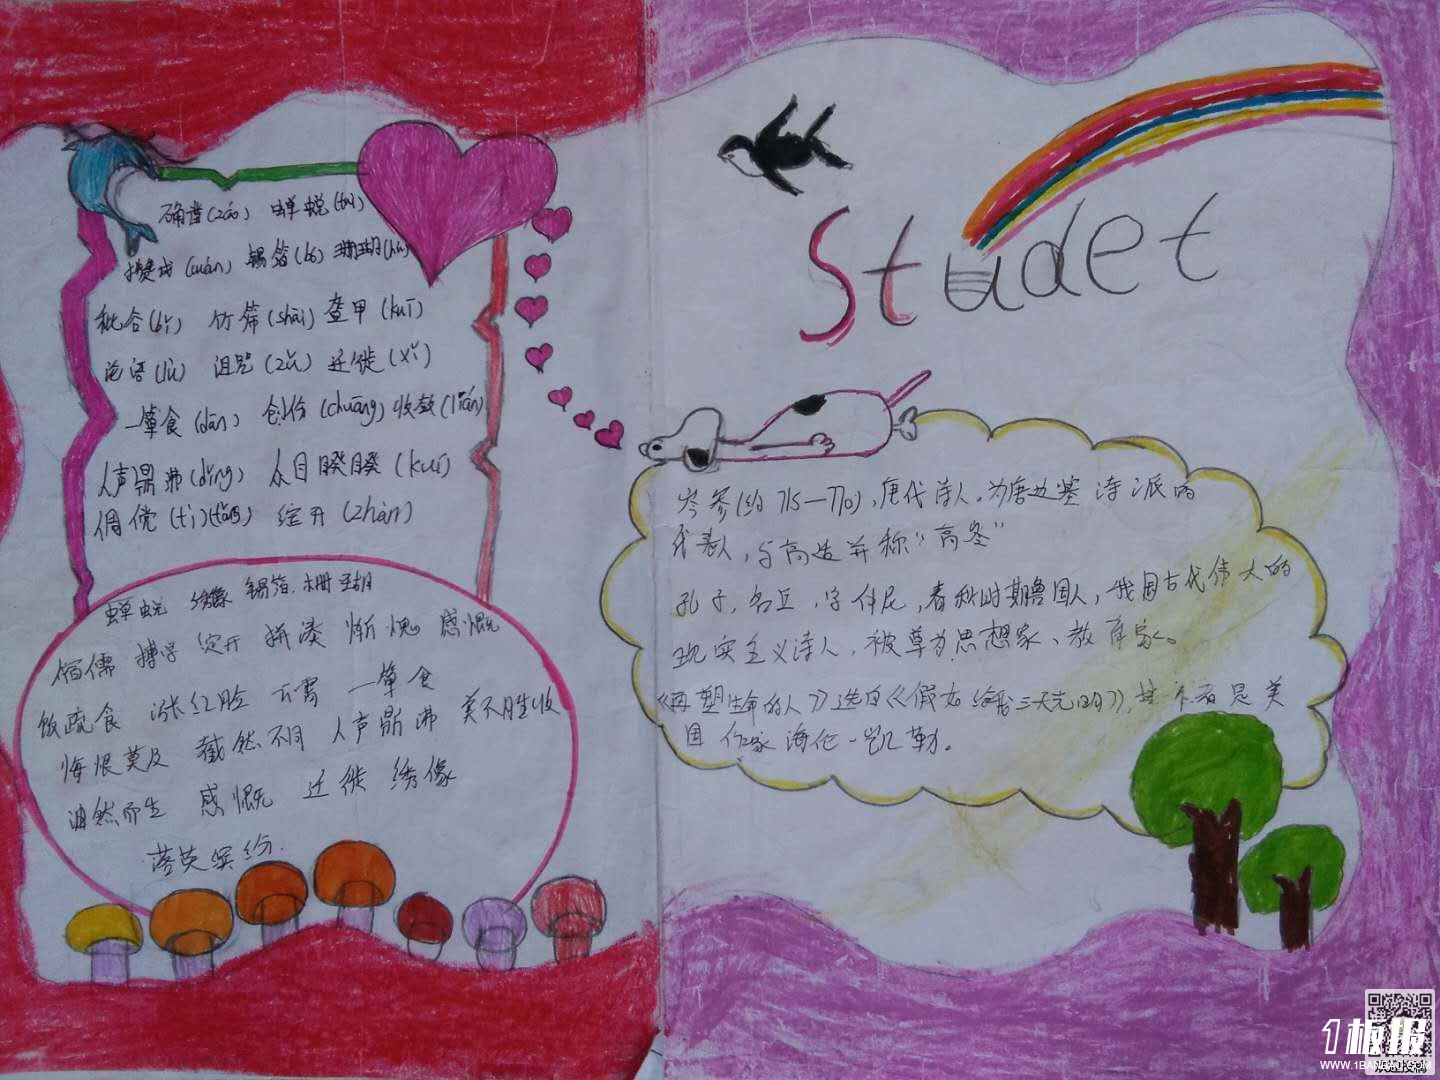 确凿(záo) 蝉蜕(tuì)
攒成(cuán) 锡箔(bó) 珊瑚(hú)
秕谷(bǐ) 竹筛(shāi) 盔甲(kuī)
论语(lún) 诅咒(zǔ) 迁徙(xǐ)
一箪食(dān) 创伤(chuāng) 收敛(liǎn)
人声鼎沸(dǐng) 众目睽睽(kuí)
倜傥(tì)(tǎng) 绽开(zhàn)
蝉蜕 绣像 锡箔 珊瑚
宿儒 搏学 绽开 拼凑 惭愧 感慨
饭疏食 涨红脸 一箪食
悔恨莫及 截然不同 人声鼎沸 美不胜收
油然而生 感慨 迁徙 绣像
落英缤纷
Studet
岑参(约715—770),唐代诗人,为唐边塞诗派的
代表人,与高适并称"高岑"
孔子,名丘,字仲尼,春秋时期鲁国人,我国古代伟大的
现实主义诗人,被尊为思想家、教育家。
《再塑生命的人》选自《假如给我三天光明》,其作者是美
国作家海伦·凯勒。
1板报
WWW.1BANBAO.COM
欢迎投稿